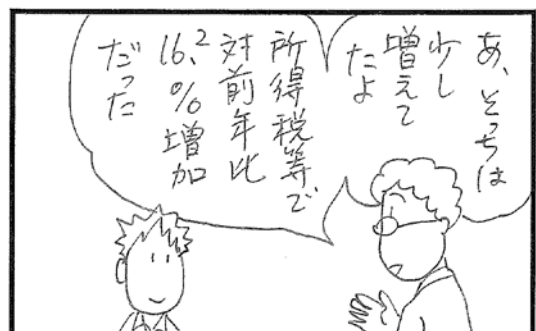 あ、そっちは
少し
増えて
たよ
所得税等で、
対前年比
16.2
%増加
だった